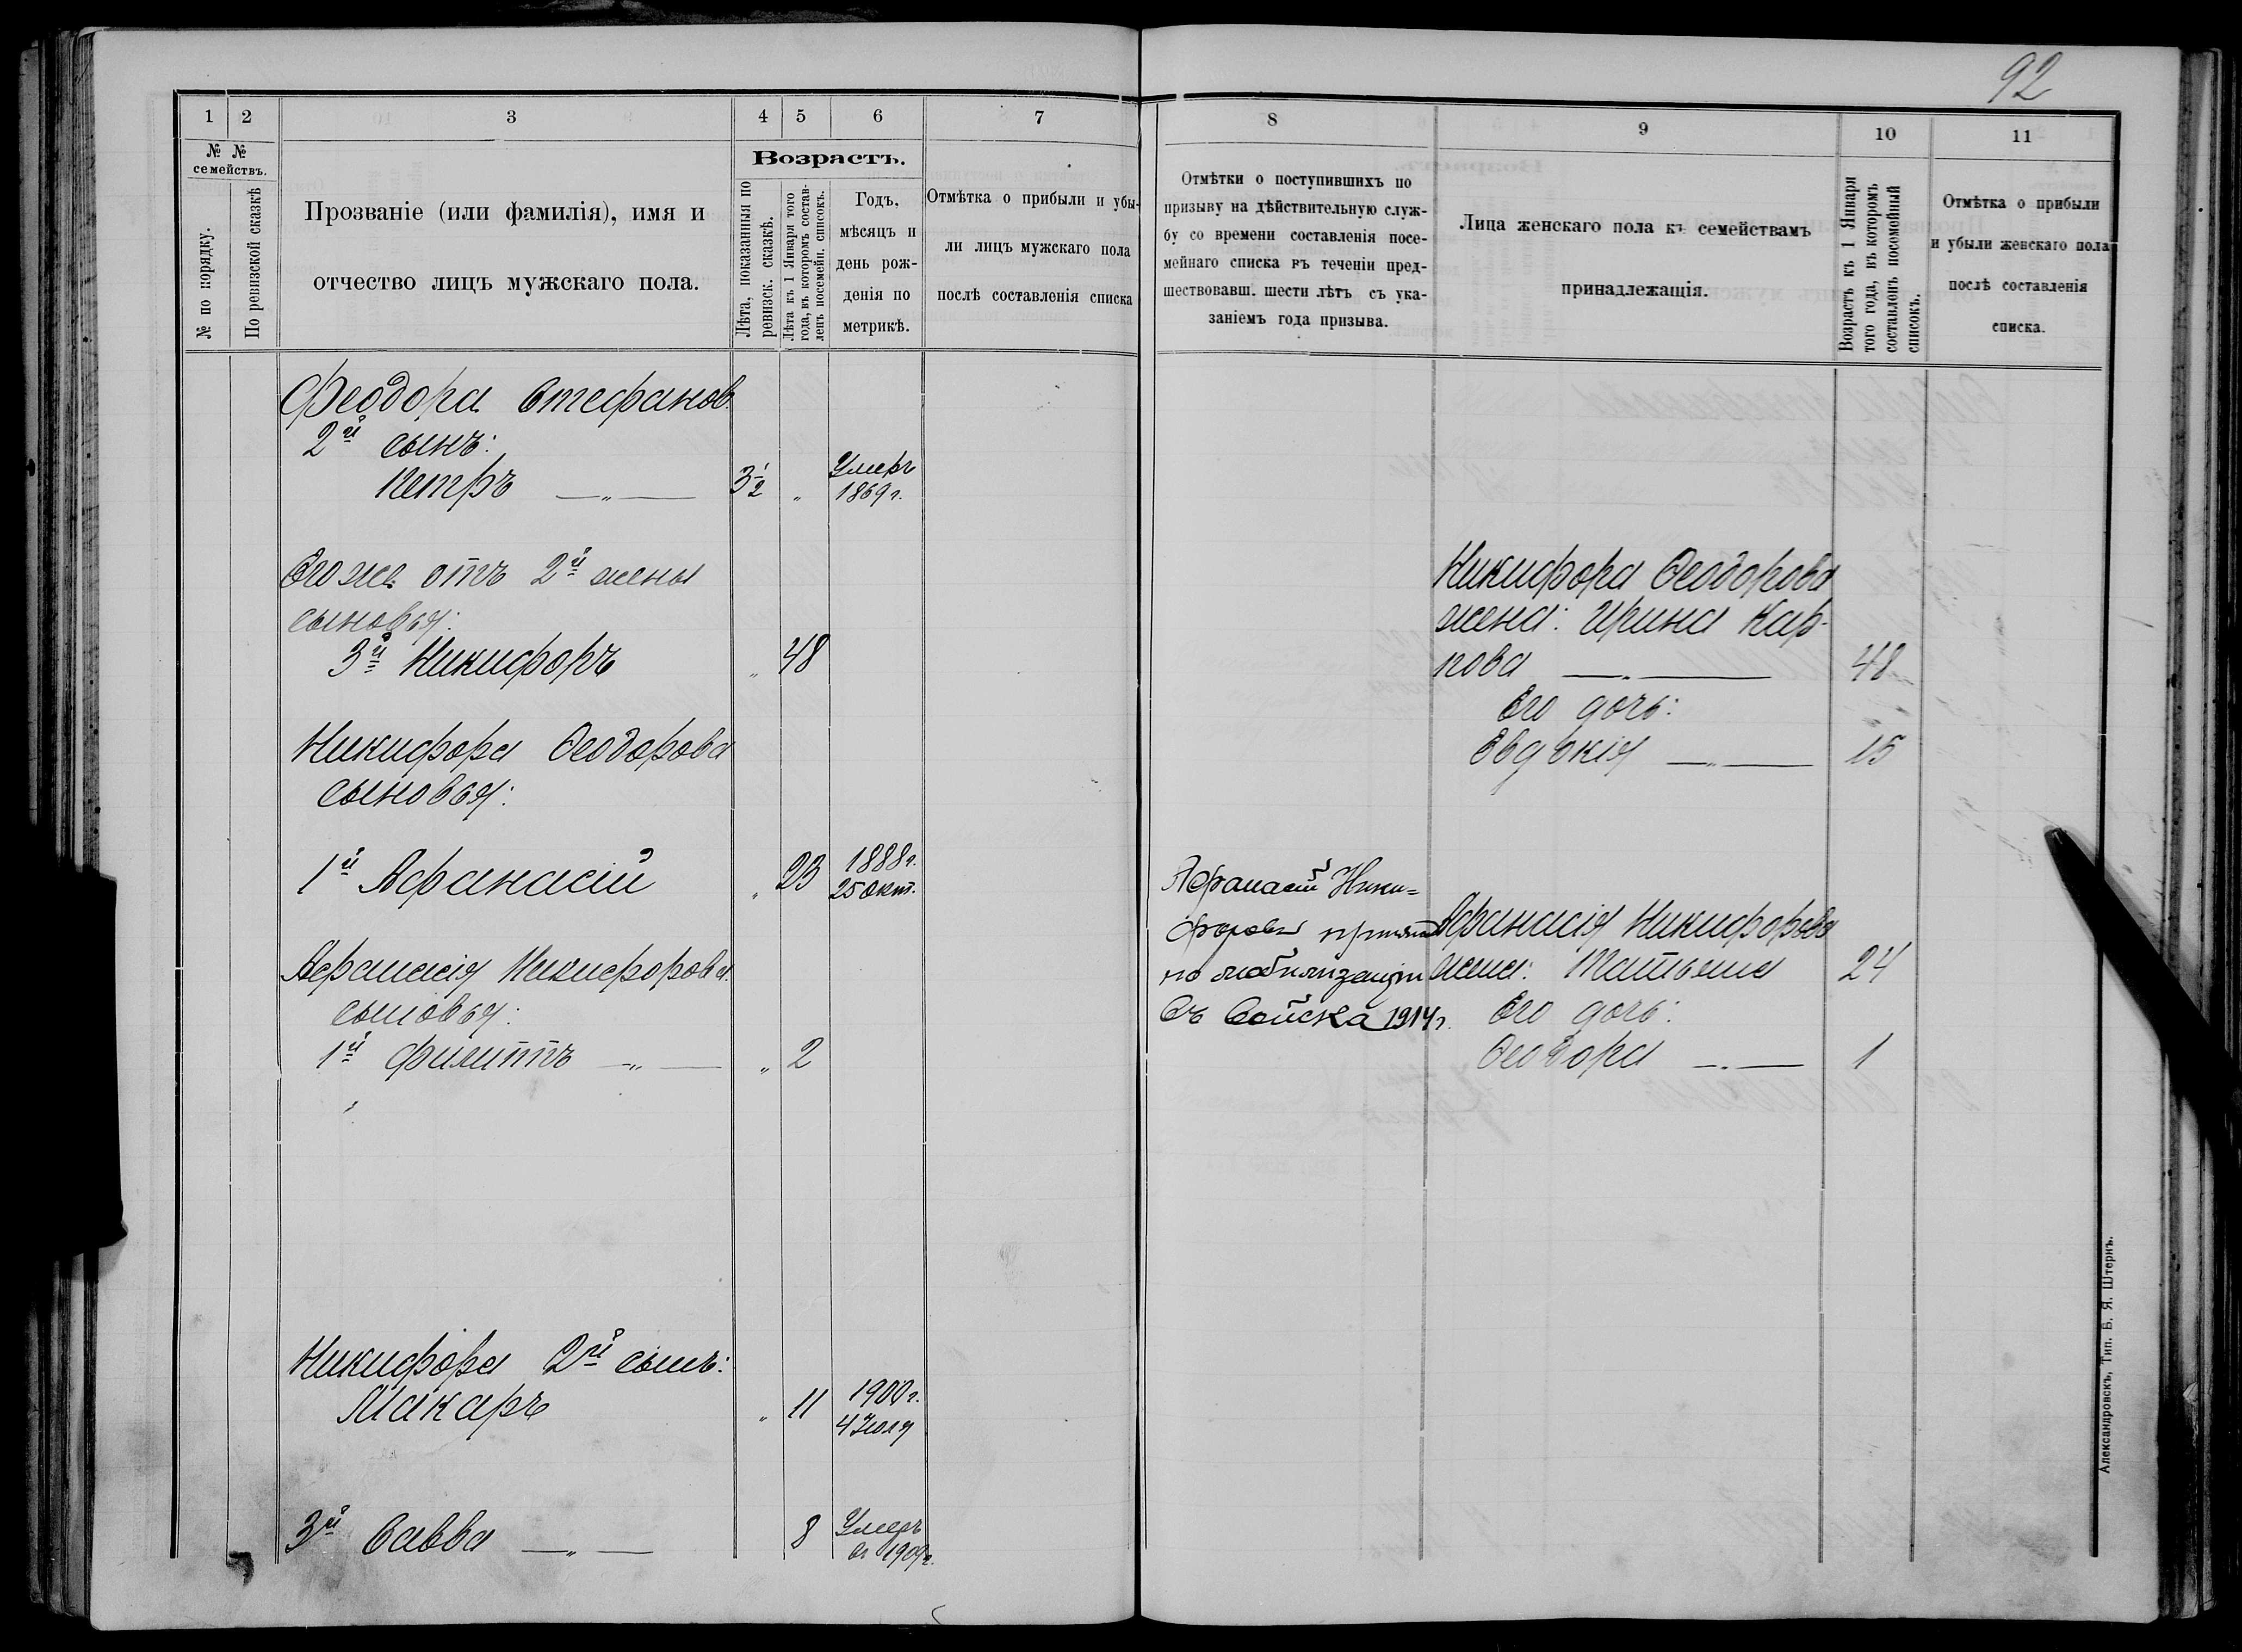 92
1 2 3 4 5 6 7
№ №
семействъ.
№ по порядку.
По ревизской сказкѣ
Прозваніе (или фамилія), имя и
отчество лицъ мужскаго пола.
Возрастъ.
Лѣта, показанныя по
ревизск. сказкѣ.
Лѣта къ 1 Января того
года, въ которомъ состав-
ленъ посемейн. списокъ.
Годъ,
мѣсяцъ и
день рож-
денія по
метрикѣ.
Отмѣтка о прибыли и убы-
ли лицъ мужскаго пола
послѣ составленія списка
Феодора Стефанов.
2й сынъ:
Петръ —„— 3½ „ Умеръ
1869 г.
Его же отъ 2й жены
сыновья:
3й Никифоръ „ 48
Никифора Ѳеодорова
сыновья:
1й Афанасій „ 23 1888 г.
25 Окт.
Афанасія Никифорова
сыновья:
1й Филиппъ —„— „ 2
Никифора 2й сынъ:
Макаръ „ 11 1900 г.
4 Іюля
3й Савва —„— 8 Умеръ
въ 1909 г.
8 9 10 11
Отмѣтки о поступившихъ по
призыву на дѣйствительную служ-
бу со времени составленія посе-
мейнаго списка въ теченіи пред-
шествовавш. шести лѣтъ съ ука-
заніемъ года призыва.
Лица женскаго пола къ семействамъ
принадлежащія.
Возрастъ къ 1 Января
того года, въ которомъ
составленъ посемейный
списокъ.
Отмѣтка о прибыли
и убыли женскаго пола
послѣ составленія
списка.
Никифора Ѳеодорова
жена: Ирина Кар-
пова —„— 48
Его дочь:
Евдокія —„— 15
Афанасій Ники=
форовъ принятъ
по мобилизаціи
Въ Войска 1914 г.
Афанасія Никифорова
жена: Татьяна 24
Его дочь:
Ѳеодора —„— 1
Александровскъ, Тип. Б. Я. Штернъ.